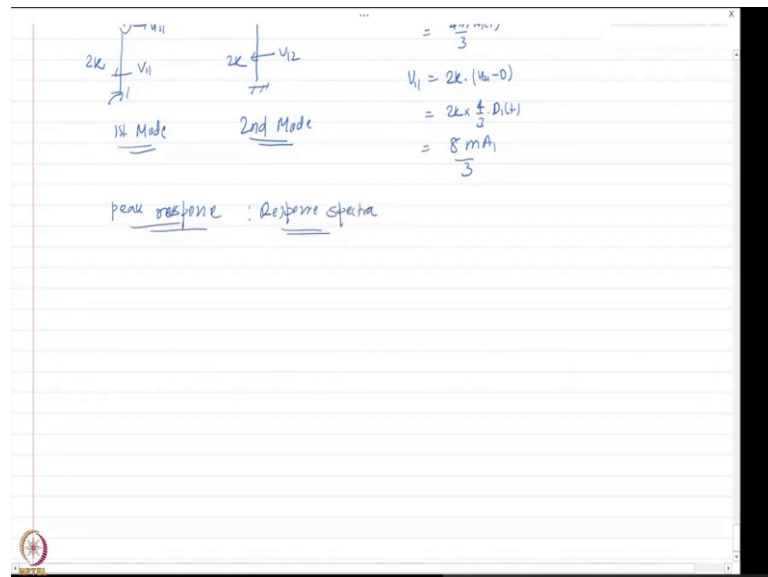 2k V11
2k V12
3
V11 = 2k. (u11-0)
= 2k × 4/3 . D1(t)
1st Mode
2nd Mode
= 8 mA1
3
peak response : Response spectra
NPTEL